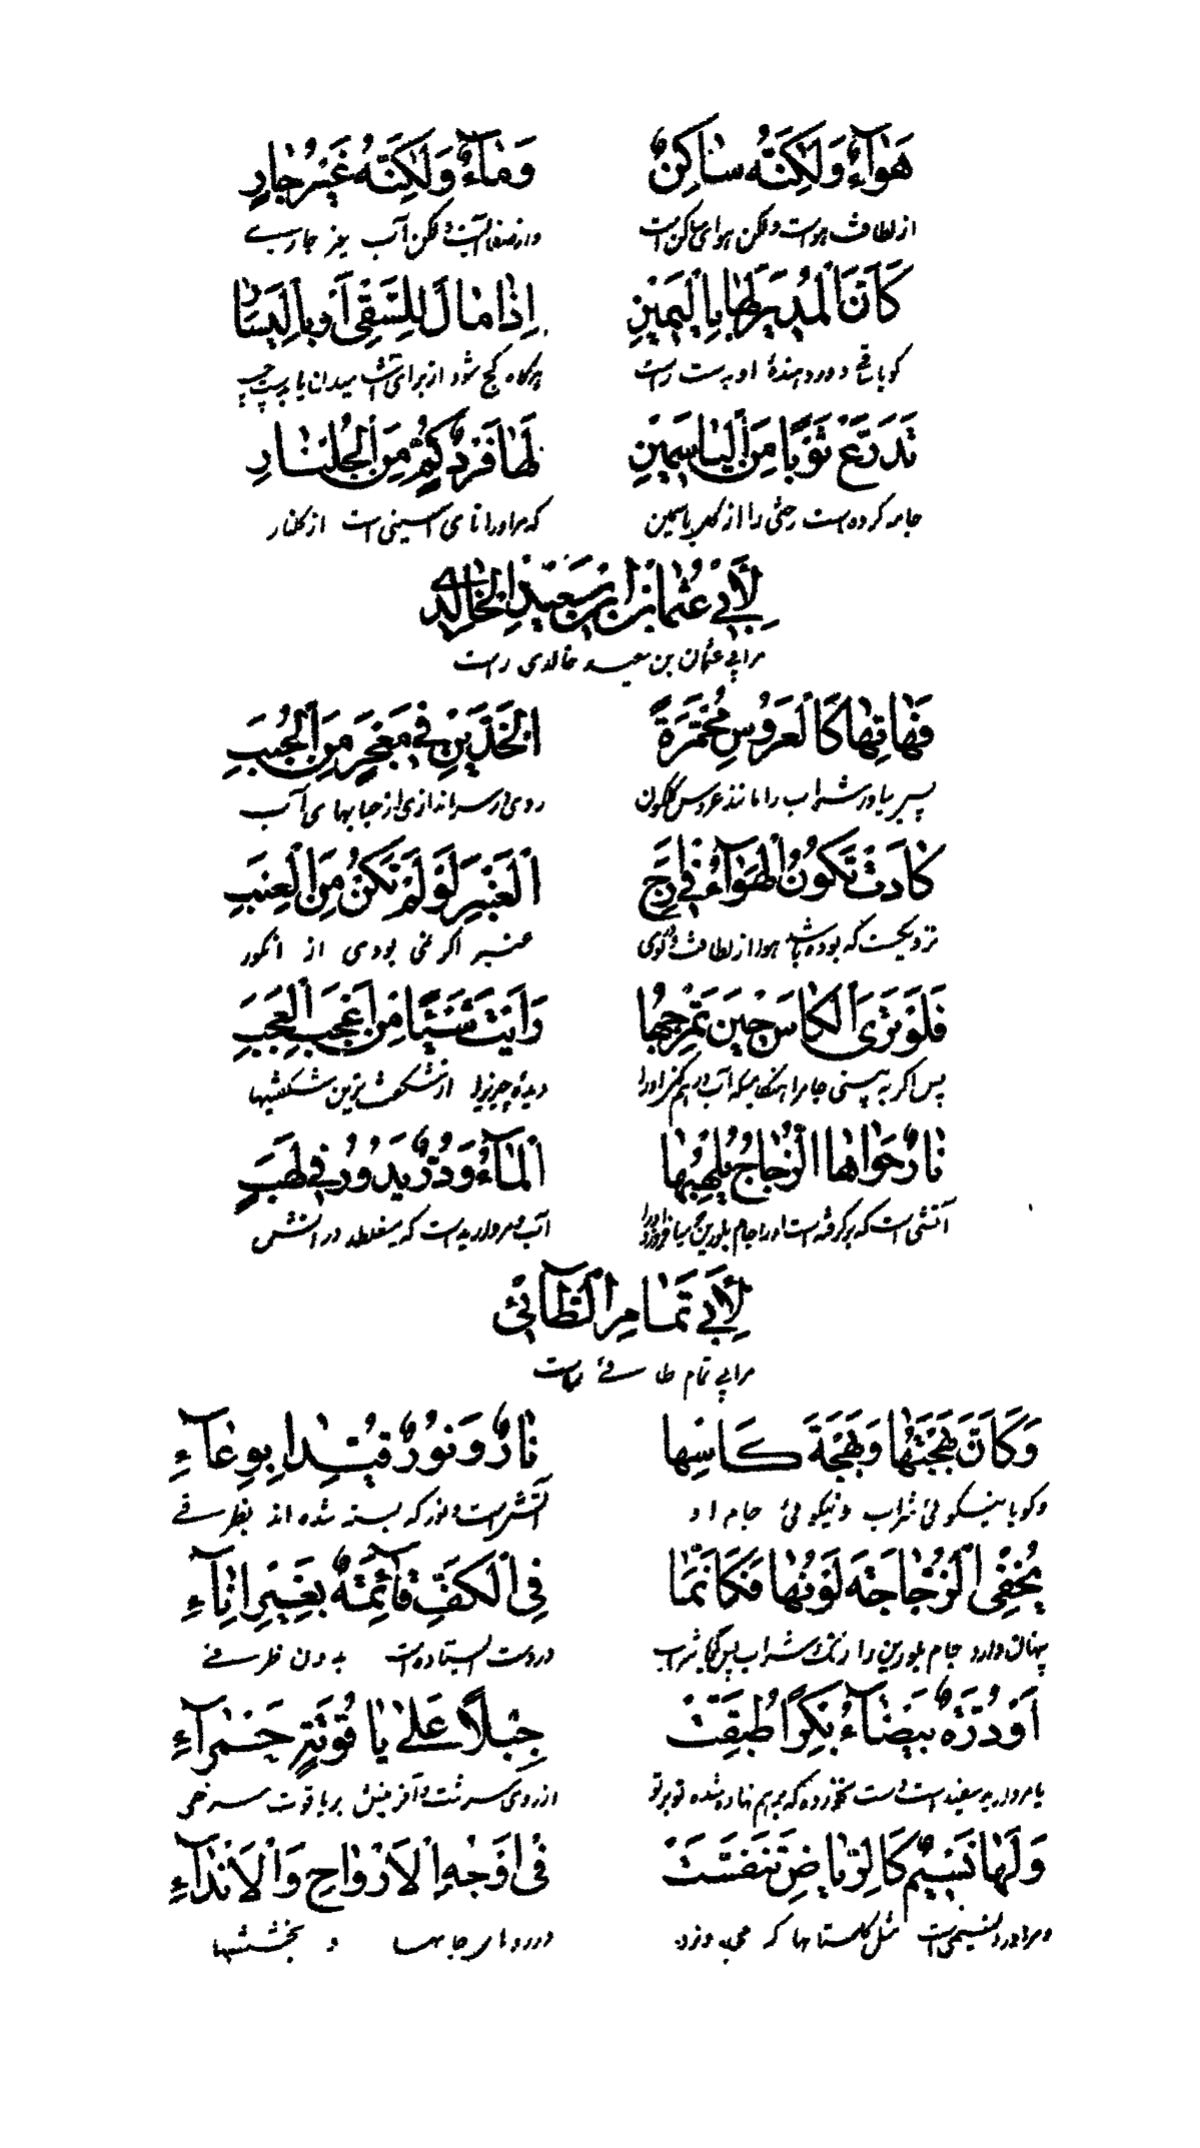 هَوَآءٌ وَلٰكِنَّهُ سٰاكِنٌ وَمٰآءٌ وَلٰكِنَّهُ غَيْرُ جٰارٍ
از لطافت هواست ولكن هواى ساكن است لكن آب غير جارى
كَأَنَّ الْمُدِيرَ لَهٰا بِالْيَمِيْنِ اِذٰا مٰالَ لِلسَّقْىِ اَوْ بِالْيَسٰارِ
كويا دور دهندهٔ او بدست راست هركاه كج شود از براى يا بدست چپ
تَدَرَّعَ ثَوْبًا مِنَ الْيٰاسَمِيْنِ لَهٰا فَرْدُ كُمٍّ مِنَ الْجُلَّنٰارِ
جامه كرده است رختى را از كل ياسمين كه مر او را آستينى است از كلنار
لِاَبِي عُثْمٰانَ ابْنِ سَعِيْدِ الْخٰالِدِي
مر ابى عثمان بن سعيد خالدى راست
فَهٰاتِهٰا كَالْعَرُوْسِ مُحْمَرَّةً الْخَدَّيْنِ فِي مِعْجَرٍ مِنَ الْحُبَبِ
پس بياور شراب را مانند عروس كلكون روى در سراندازى از حبابهاى آب
كٰادَتْ تَكُوْنُ الْهَوَآءُ فِي اَرَجِ الْعَنْبَرِ لَوْ لَمْ تَكُنْ مِنَ الْعِنَبِ
نزديكست كه بوده باشد هوا از لطافت عنبر اكر نمى بودى از انكور
فَلَوْ تَرَى الْكٰاسَ حِيْنَ تَمْزِجُهٰا رَاَيْتَ شَيْئًا مِنْ اَعْجَبِ الْعَجَبِ
پس اكر به بينى جام را هنكاميكه آب اورا ديده چيزيرا از شكفت ترين شكفتيها
نٰارٌ حَوٰاهٰا الزُّجٰاجُ يُلْهِبُهٰا الْمٰآءُ وَدُرٌّ يَدُوْرُ فِي لَهَبٍ
آتشى است كه بركرفته است اورا جام بلورين آب و مرواريد است كه ميغلطد در آتش
لِاَبِي تَمٰامِ الطّٰآئِي
مر ابى تمام طائى راست
وَكَاَنَّ بَهْجَتَهٰا وَبَهْجَةَ كَاسِهٰا نٰارٌ وَنُوْرٌ قُيِّدٰا بِوِعٰآءِ
وكويا نيكوئى شراب و نيكوئى جام او آتش است و نور كه بسته شده اند بظرفى
يُخْفِى الزُّجٰاجَةَ لَوْنُهٰا فَكَاَنَّمٰا فِى الْكَفِّ قٰآئِمَةٌ بِغَيْرِ اِنٰآءِ
پنهان دارد جام بلورين را رنك شراب پس كويا شراب در دست ايستاده است بدون ظرفى
اَوْ دُرَّةٌ بَيْضٰآءُ بِكْرٌ اُطْبِقَتْ حَبَلًا عَلىٰ يٰاقُوْتَةٍ حَمْرٰآءِ
يا مرواريد سفيد است كه برهم نهاده شده تو برتو از روى سرشت و آفرينش بر ياقوت سرخى
وَلَهٰا نَسِيْمٌ كَالرِّيٰاضِ تَنَفَّسَتْ فِى اَوْجُهِ الْاَرْوٰاحِ وَالْاَنْدٰآءِ
و مر او را نسيمى است مثل كلستانها كه مى وزد در روهاى جانها و بخششها